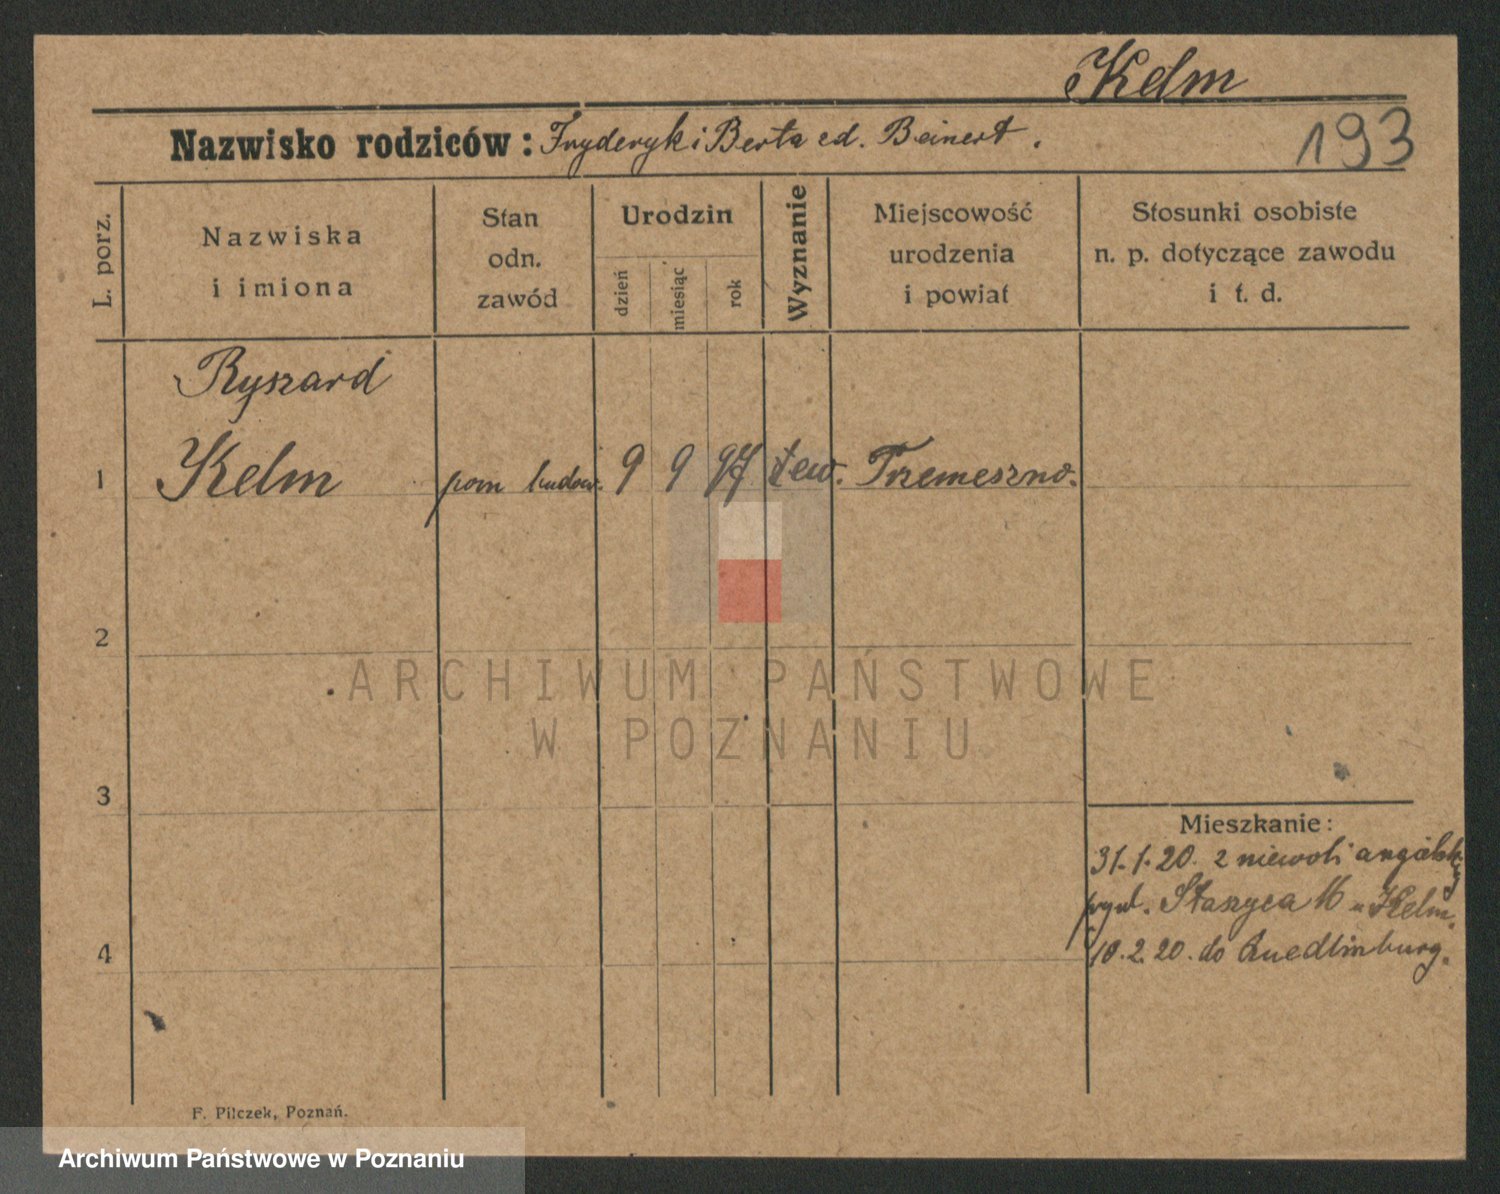 Kelm
Nazwisko rodziców: Fryderyk i Berta ed. Beinert.
193
L. porz.
Nazwiska
i imiona
Stan
odn.
zawód
Urodzin
dzień
miesiąc
rok
Wyznanie
Miejscowość
urodzenia
i powiat
Stosunki osobiste
n. p. dotyczące zawodu
i t. d.
Ryszard
1 Kelm pom budow. 9 9 97 ew. Trzemeszno.
2
ARCHIWUM PAŃSTWOWE
W POZNANIU
3
Mieszkanie:
31.1.20. z niewoli angielsk
Staszyca 16 Kelm.
4
18.2.20. do Quedlinburg.
F. Pilczek, Poznań.
Archiwum Państwowe w Poznaniu